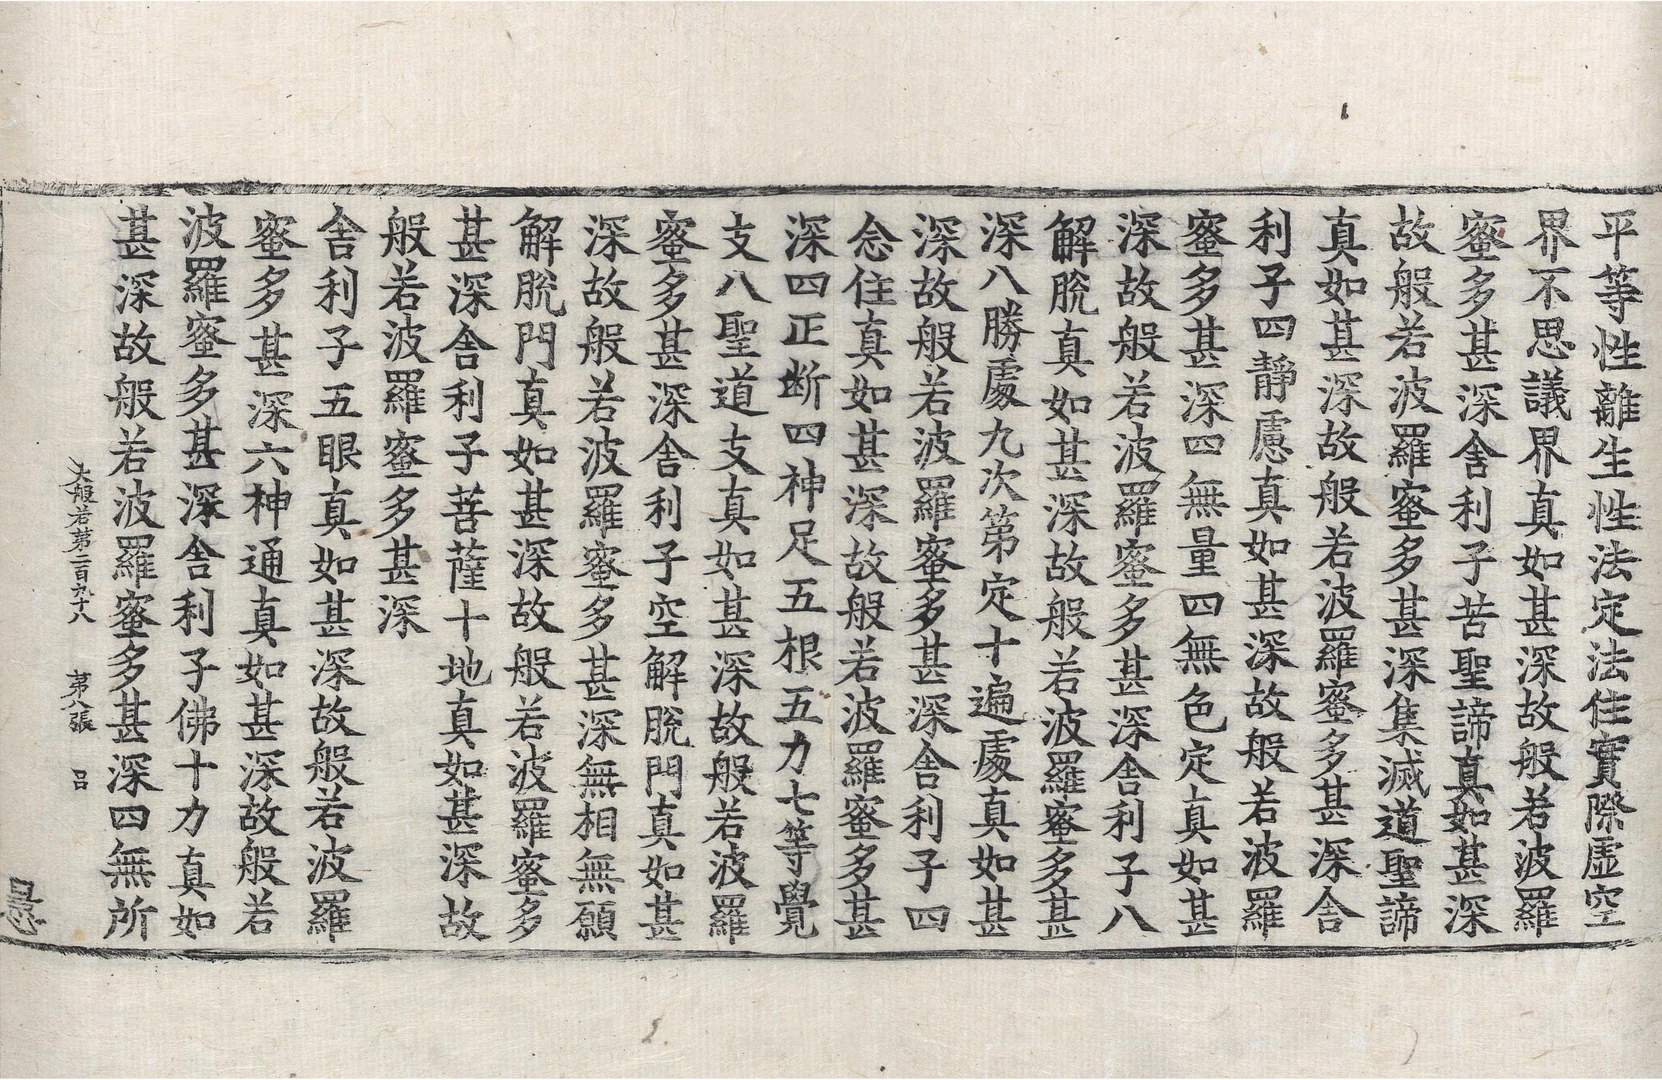 平等性離生性法定法住實際虛空
界不思議界真如甚深故般若波羅
蜜多甚深舍利子苦聖諦真如甚深
故般若波羅蜜多甚深集滅道聖諦
真如甚深故般若波羅蜜多甚深舍
利子四靜慮真如甚深故般若波羅
蜜多甚深四無量四無色定真如甚
深故般若波羅蜜多甚深舍利子八
解脫真如甚深故般若波羅蜜多甚
深八勝處九次第定十遍處真如甚
深故般若波羅蜜多甚深舍利子四
念住真如甚深故般若波羅蜜多甚
深四正断四神足五根五力七等覺
支八聖道支真如甚深故般若波羅
蜜多甚深舍利子空解脫門真如甚
深故般若波羅蜜多甚深無相無願
解脫門真如甚深故般若波羅蜜多
甚深舍利子菩薩十地真如甚深故
般若波羅蜜多甚深
舍利子五眼真如甚深故般若波羅
蜜多甚深六神通真如甚深故般若
波羅蜜多甚深舍利子佛十力真如
甚深故般若波羅蜜多甚深四無所
大般若第二百九十八 第八張 呂